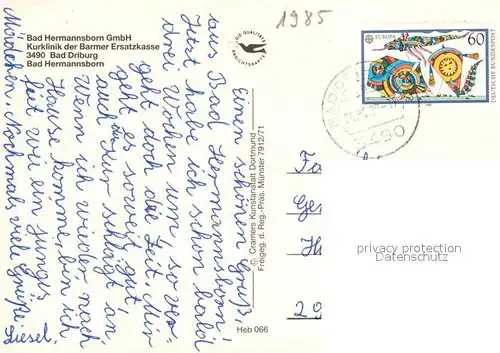 Bad Hermannsborn GmbH
Kurklinik der Barmer Ersatzkasse
3490 Bad Driburg
Bad Hermannsborn
1985
DIE QUALITÄTS
ANSICHTSKARTE
EUROPA
60
DEUTSCHE BUNDESPOST
3490
Einen schönen Gruß
aus Bad Hermannsborn!
Jetzt habe ich schon bald
drei Wochen um, so ver-
geht doch die Zeit. Mir
geht es soweit gut,
auch die Kur schlägt an.
Wenn ich wieder nach
Hause komme, bin ich
fit wie ein junges
Mädchen. Nochmals viele Grüße
Liesel.
© Cramers Kunstanstalt Dortmund
Freigeg. d. Reg.-Präs. Münster 7912/71
Heb 066
Fa
Ge
H
29
privacy protection
Datenschutz